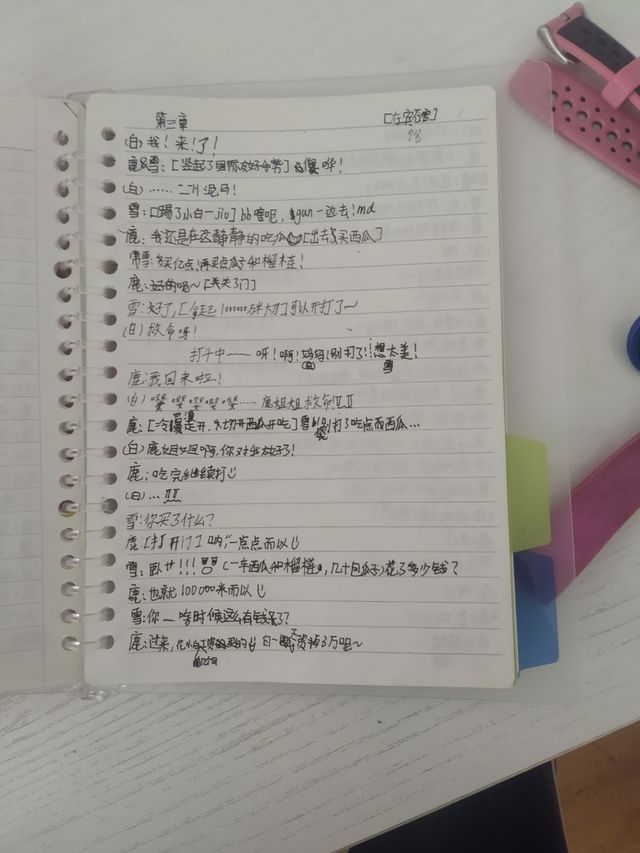 第三章
(白)我！来！了！
鹿&雪：[竖起了国际友好手势] 哗！
(白)……二小泥马！
雪：[踢了小白一jio] bb啥呢，gun一边去！md
鹿：我还是在这静静的吃瓜[出去买西瓜]
雪：多买亿点！再买点瓜子和榴梿！
鹿：好的呢～[关了门]
雪：好了，[拿起100000米大刀]可以开打了～
(白)救命呀！
打斗中～～～ 呀！啊！妈妈！别打了！！想太美！
白 雪
鹿：我回来啦！
(白)嘤嘤嘤嘤嘤……鹿姐姐救命
鹿：[冷漠走开，切开西瓜开吃]雪别打了吃点西瓜…
(白)鹿姐姐啊，你对我太好了！
鹿：吃完继续打
(白)…
雪：你买了什么？
鹿：[打开门]呐，一点点而以
雪：卧艹!!! (一车西瓜和榴梿，几十包瓜子)花了多少钱？
鹿：也就100000米而以
雪：你—啥时候这么有钱了？
鹿：过来，花小白工资买的 白一天工资涨3万呢～